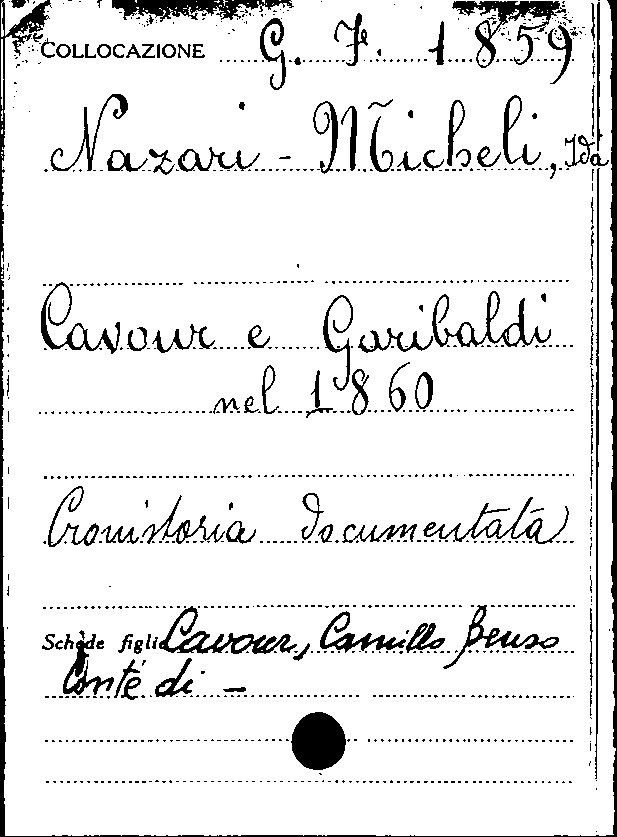 COLLOCAZIONE G. F. 1859
Nazari - Micheli, Ida
Cavour e Garibaldi
nel 1860
Cronistoria documentata
Schede figlie Cavour, Camillo Benso
Conte di -